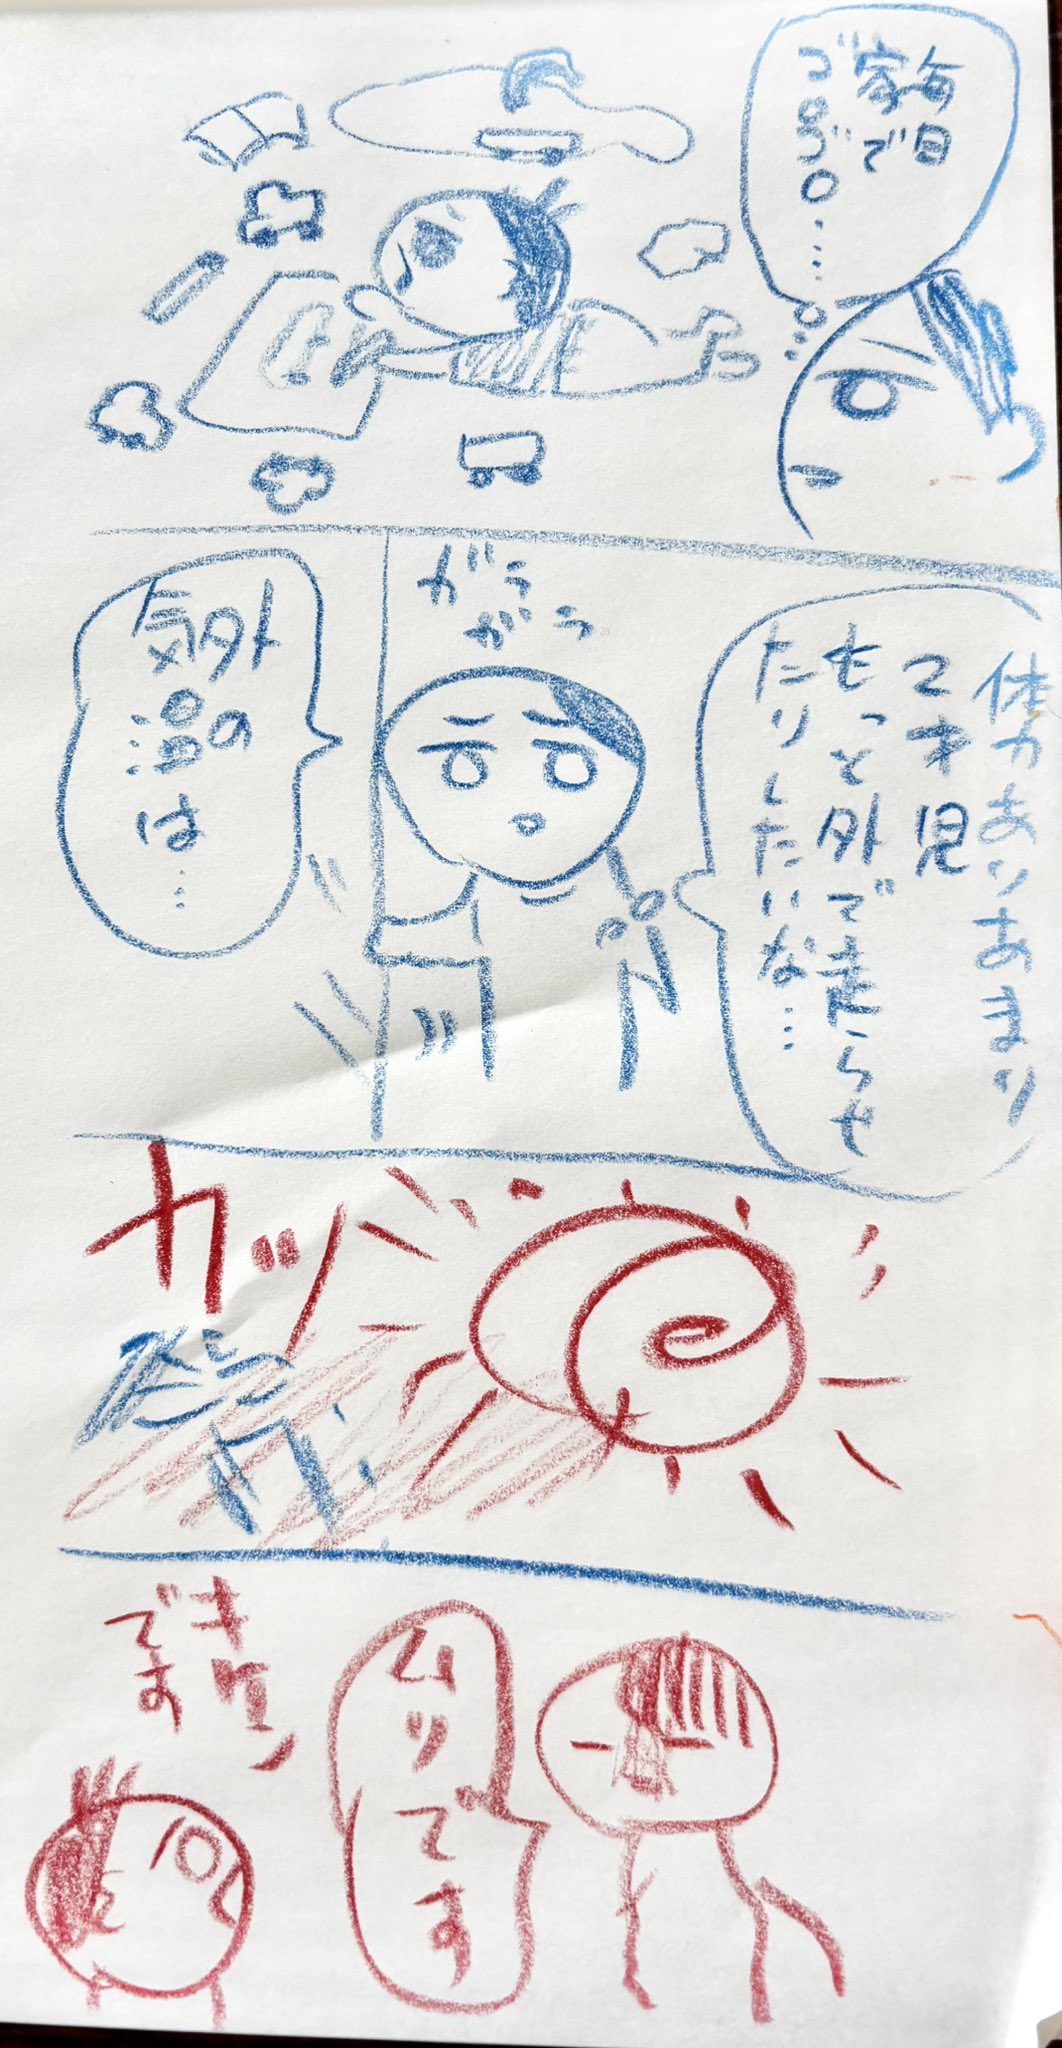 毎日
家で
ゴロゴロ……
体力ありあまり
2才児
もっと外で走らせ
たりしたいな…
ガラ
ガラ
外の
気温は…
カッ
ムリです
キケン
です